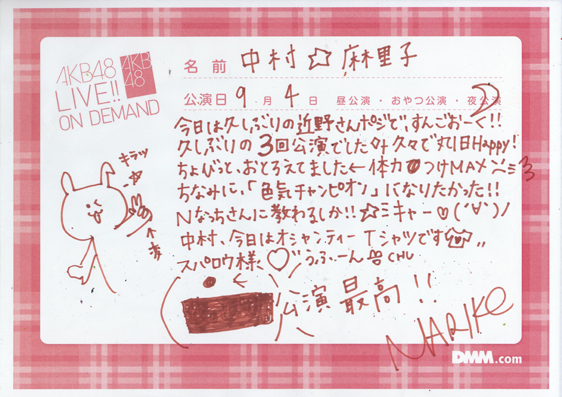 AKB48
LIVE!!
ON DEMAND
AKB
48
名前 中村☆麻里子
公演日 9月4日 昼公演・おやつ公演・夜公演
今日は久しぶりの近野さんポジで、すんごおーく!!
久しぶりの3回公演でした 久々で丸1日Happy!
ちょびっと、おとろえてました←体力 つけMAX
ちなみに、「色気チャンピオン」になりたかった!!
Nなっちさんに教わるしか!!☆ミキャー♡(´∀`)ノ
中村、今日はオシャンティーTシャツです
スパロウ様、♡うふふーん CHU
キラッ
公演最高!!
NARIKO
DMM.com